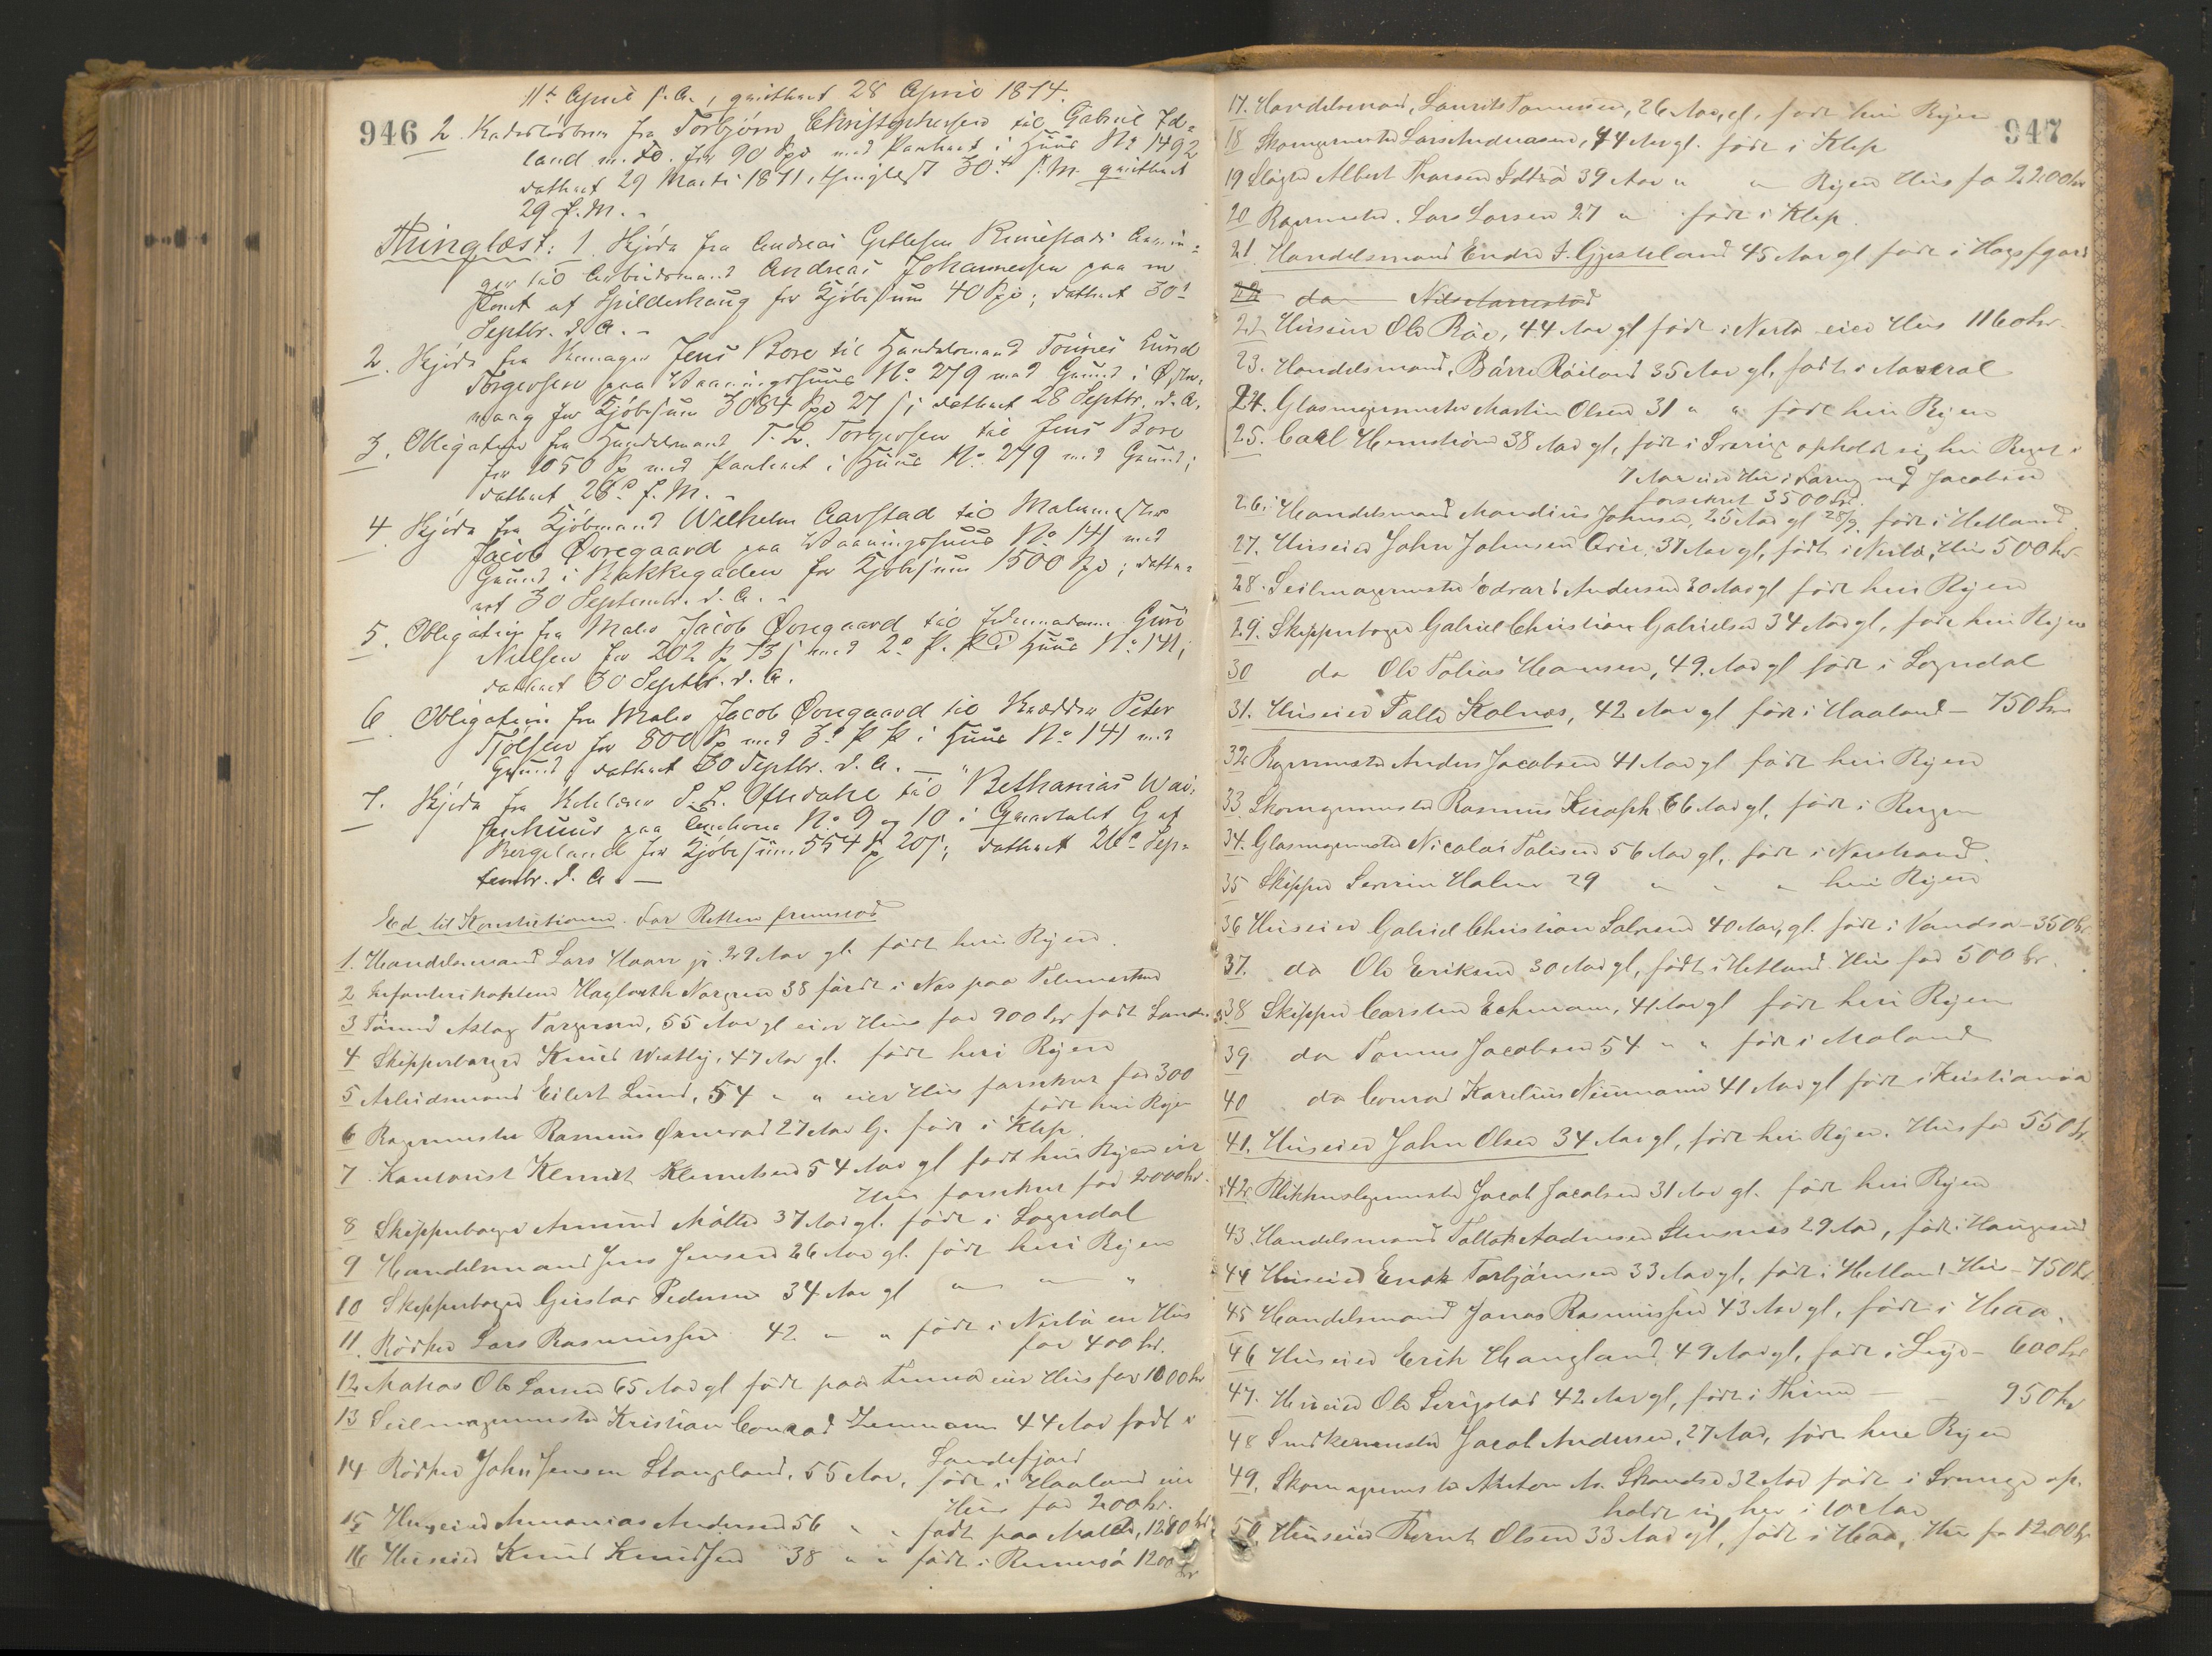 946
11te April s. A., qvitteret 28 April 1874.
2. fra Torbjørn Christophersen til Gabriel Id=
land m. fl. for 90 Spd med Panteret i Huus No 1492
datteret 29 Marts 1871, thinglæst 30te s. M. qvitteret
29 f. M. -
Thinglæst: 1. Skjøde fra Andreas Gitlesen Rimestads Arvin=
ger til Arbeidsmand Andreas Johannessen paa en
Part af Spilderhaug for Kjøbesum 40 Spd; datteret 30te
Septbr. d. A. -
2. Skjøde fra Jens Bore til Handelsmand Tønnes Lund
Torgersen paa Vaaningshuus No. 279 med Grund i Øster=
vaag for Kjøbesum 3084 Spd 27 s; datteret 28 Septbr. d. A.
3. Obligation fra Handelsmand T. L. Torgersen til Jens Bore
for 1050 Sp med Panteret i Huus No. 279 med Grund;
datteret 28de f. M. -
4. Skjøde fra Kjøbmand Wilhelm Aarstad til Malermester
Jacob Øvregaard paa Vaaningshuus No. 141 med
Grund i Bakkegaden for Kjøbesum 1500 Spd; datte=
ret 30 Septembr. d. A. -
5. Obligation fra Maler Jacob Øvregaard til Guri
Nielsen for 202 Sp 73 s med 2de P. P. i Huus No. 141;
datteret 30 Septbr. d. A.
6. Obligation fra Maler Jacob Øvregaard til Peter
Tjølsen for 800 Sp med 3de P P i Huus No. 141 med
Grund, datteret 30 Septbr. d. A. —
7. Skjøde fra S. L. Oftedahl til "Bethanias Vai=
senhuus paa No. 9 og 10 i Qvartalet G af
Bergeland for Kjøbesum 554 Sp 20 s; datteret 26de Sep=
tembr. d. A. —
Ed til Konstitutionen. For Retten fremstod
1. Handelsmand Lars Haaver jr 29 Aar gl. født her i Byen.
2 Infanterikaptein Norgren 38 født i Nes paa Telemarken
3 Aslag Torgersen, 55 Aar gl eier Huus for 900 kr født
4 Skipperborger Knud Westby, 47 Aar gl. født her i Byen
5 Arbeidsmand Eilert Lund, 54 " " eier Hus forsikret for 300
født her i Byen
6 Bagermester Rasmus 27 Aar G. født i Klep.
7 Kontorist Klemet Klemetsen 54 Aar gl født her i Byen eier
Hus forsikret for 2000 kr.
8 Skipperborger Amund Møller 37 Aar gl. født i Sogndal
9 Handelsmand Jens Jensen 26 Aar gl. født her i Byen
10 Skipperborger Gustav Pedersen 34 Aar gl " " "
11. Bødker Lars Rasmussen 42 " " født i Nærbø en Hus
for 400 kr.
12. Ole Larsen 65 Aar gl født paa eier Hus for 1000 kr
13 Seilmagermester Kristian Conrad Zimmermann 44 Aar født i
Sandefjord
14 Bødker John Jensen Stangeland, 55 Aar, født i Haaland eier
Hus for 200 kr.
15 Huseier Ananias Andersen 56 " " født paa 1280 kr
16 Huseier Knud Knudsen 38 " " født i Rennesø 1200
kr
947
17. Handelsmand, Laurits Tønnesen, 26 Aar gl, født her i Byen
18 Skomagermester Lars Andreasen, 44 Aar gl. født i Klep
19 Slagter Albert Thorsen 39 Aar " " Byen Hus for 2200 kr
20 Bagermester Lars Larsen 27 " født i Klep.
21 Handelsmand Endre T. Gjesteland 45 Aar gl født i Høgsfjord
22 do Nils Aarrestad
22 Huseier Ole Røe, 44 Aar gl født i Nærbø eier Hus 1160 kr.
23. Handelsmand, Bårre Røiland 35 Aar gl, født i Aaseral
24. Glasmagermester Martin Olsen 31 " " født her i Byen
25. Carl 38 Aar gl, født i Sverig opholdt sig her i Byen i
7 Aar eier Hus i med Jacobsen
forsikret 3500 kr.
26. Handelsmand Mandius Johnsen, 25 Aar gl 28/9. født i Hetland
27. Huseier John Johnsen 37 Aar gl, født i Nærbø, Hus 500 kr
28. Seilmagermester Edvard Andersen 30 Aar gl født her i Byen
29. Skipperborger Gabriel Christian Gabrielsen 34 Aar gl, født her i Byen
30 do Ole Tobias Hansen, 49. Aar gl født i Sogndal
31. Huseier Kolnes, 42 Aar gl født i Haaland - 750 kr
32 Bagermester Anders Jacobsen 41 Aar gl født her i Byen
33. Skomagermester Rasmus 66 Aar gl, født i Bergen
34. Glasmagermester Nicolai Tobisen 56 Aar gl, født i Nerstrand.
35 Skipper Severin Holmer 29 " " " her i Byen
36 Huseier Gabriel Christian Salvesen 40 Aar gl. født i Vandsø - 350 kr.
37. do Ole Eriksen 30 Aar gl, født i Hetland. Hus for 500 kr.
38 Skipper Carsten Eckmann, 41 Aar gl født her i Byen
39. do Tønnes Jacobsen 54 " " født i Moland
40 do Conrad Karelius Neumann 41 Aar gl født i Kristiania
41. Huseier John Olsen 34 Aar gl, født her i Byen. Hus for 550 kr.
42. Blikkenslagermester Jacob Jacobsen 31 Aar gl. født her i Byen
43. Handelsmand Tallak Andersen Stensnes 29 Aar, født i Haugesund
44 Huseier Enok Torbjørnsen 33 Aar gl, født i Hetland Hus - 750 kr.
45 Handelsmand Jonas Rasmussen 43 Aar gl, født i Haa.
46 Huseier Erik Haugland 49 Aar gl, født i - 600 kr
47. Huseier Ole Serigstad 42 Aar gl, født i Thime - - 950 kr
48 Snedkermester Jacob Andersen, 27 Aar, født here Byen
49. Skomagermester Anton 32 Aar født i Sverrige op-
holdt sig her i 10 Aar
50. Huseier Bernt Olsen 33 Aar gl, født i Haa, Hus for 1200 kr